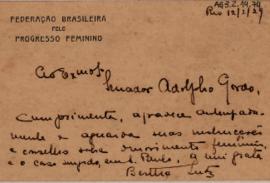 FEDERAÇÃO BRASILEIRA
PELO
PROGRESSO FEMININO
Rio 12/2/29
Ao Exmo
Senador Adolpho Gordo,
Cumprimenta, agradece antecipada-
mente e aguarda suas instrucções
e conselhos sobre movimento feminino
e o caso em S. Paulo, a mui grata
Bertha Lutz